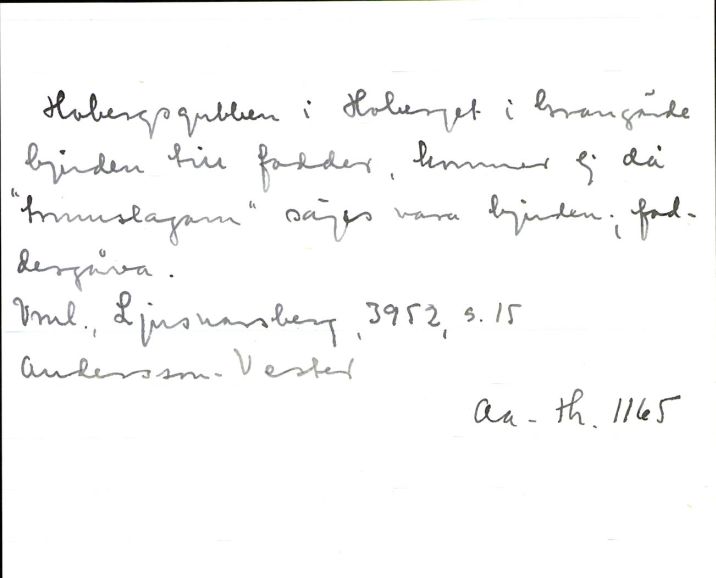 Hobergsgubben i Hoberget i Grangärde
bjuden till fadder, kommer ej då
"trumslagarn" säges vara bjuden; fad-
dergåva.
Vml., Ljusnarsberg, 3952, s. 15
Andersson-Vester
Aa-th. 1165